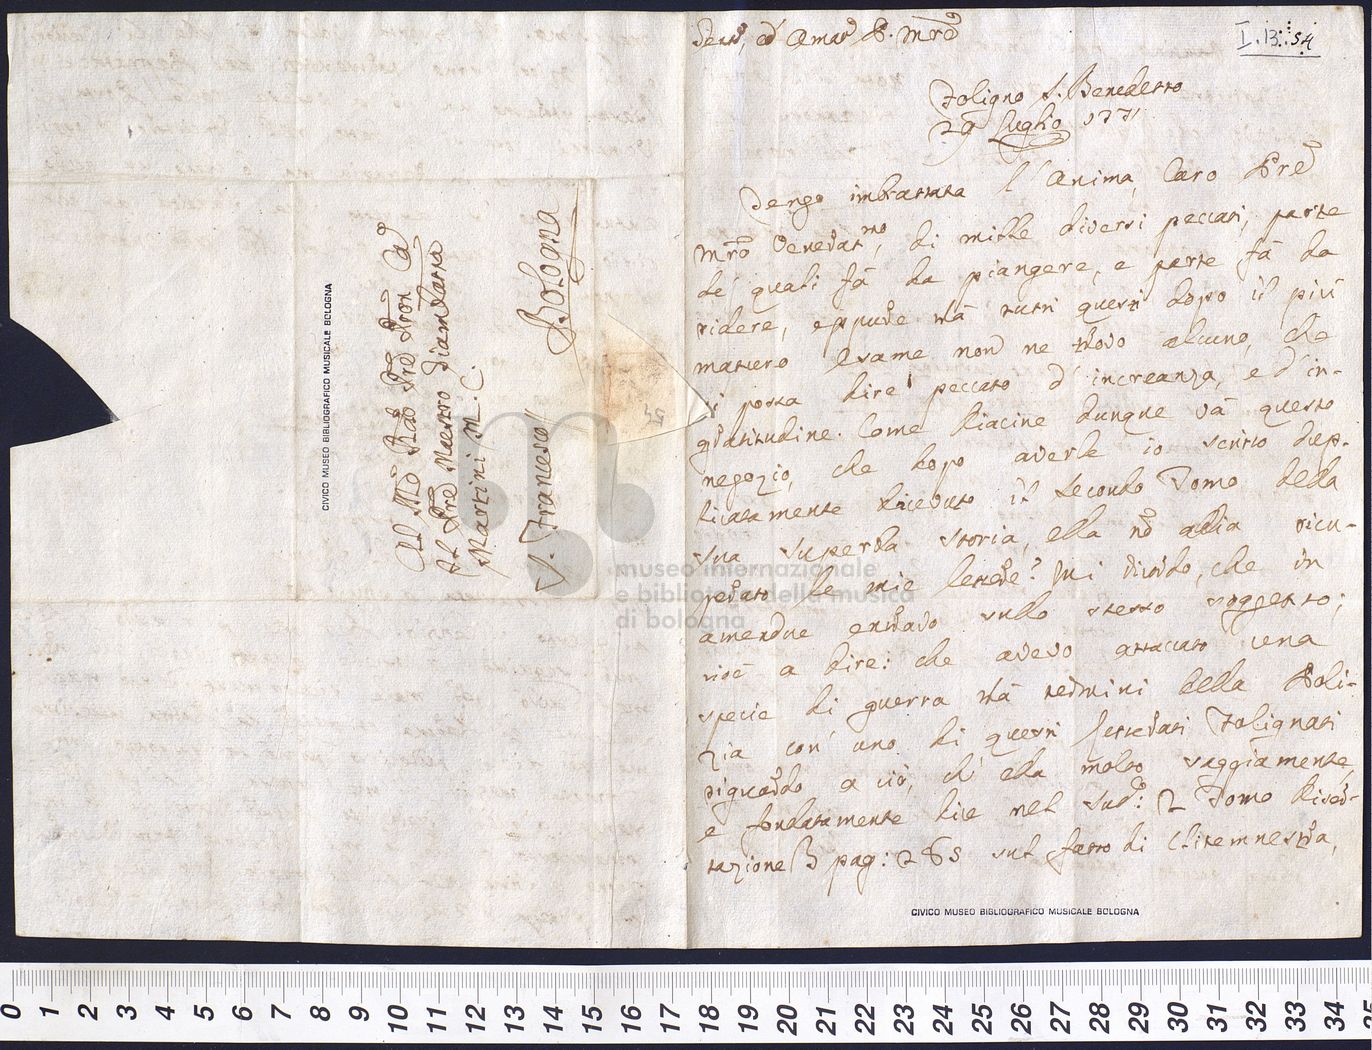 I.13.54
Foligno S. Benedetto
29 Luglio 1771
Tengo imbrattata l'Anima, Caro Pre
Mro Venerat.mo, di mille diversi peccati, parte
de' quali fà da piangere, e parte fà da
ridere, eppure trà tutti questi dopo il più
maturo esame non ne trovo alcuno, che
si possa dire peccato d'increanza, e d'in-
gratitudine. Come diacine dunque và questo
negozio, che dopo averle io scritto dup-
licatamente ricevuto il secondo Tomo della
sua superba storia, ella nō abbia ricu-
perato le mie lettere? Mi ricordo, che in
amendue entravo sullo stesso soggetto;
cioè a dire: che avevo attaccato una
specie di guerra trà termini della Poli-
zia con uno di questi Letterati Folignati
riguardo a ciò, ch'ella molto saggiamente,
e fondatamente dice nel sud.o: 2 Tomo Diser-
tazione 3 pag: 265 sul fatto di Clitemnestra,
Al Pre Maestro Giambatta
Martini M. C.
S. Francesco
Bologna
54
CIVICO MUSEO BIBLIOGRAFICO MUSICALE BOLOGNA
CIVICO MUSEO BIBLIOGRAFICO MUSICALE BOLOGNA
museo internazionale
e biblioteca della musica
di bologna
0 1 2 3 4 5 6 7 8 9 10 11 12 13 14 15 16 17 18 19 20 21 22 23 24 25 26 27 28 29 30 31 32 33 34 35